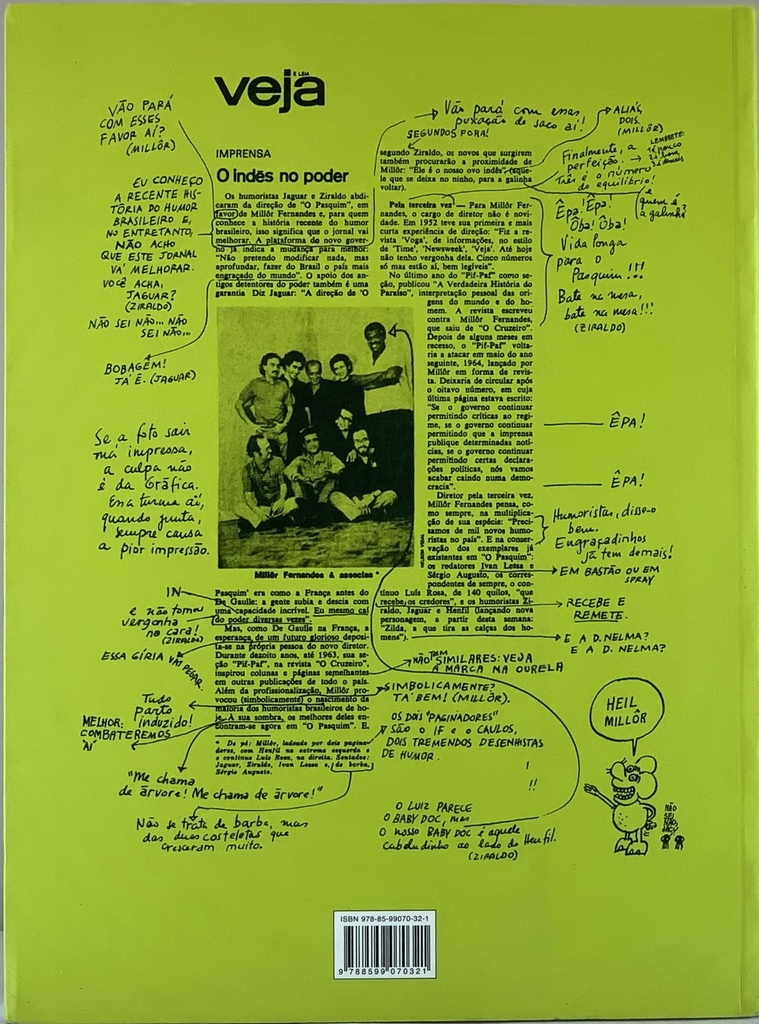 veja
E LEIA
IMPRENSA
O indês no poder
Os humoristas Jaguar e Ziraldo abdi-
caram da direção de "O Pasquim", em
favor de Millôr Fernandes e, para quem
conhece a história recente do humor
brasileiro, isso significa que o jornal vai
melhorar. A plataforma do novo gover-
no já indica a mudança para melhor:
"Não pretendo modificar nada, mas
aprofundar, fazer do Brasil o país mais
engraçado do mundo". O apoio dos an-
tigos detentores do poder também é uma
garantia Diz Jaguar: "A direção de 'O
Millôr Fernandes & asseclas *
Pasquim' era como a França antes do
De Gaulle: a gente subia e descia com
uma capacidade incrível. Eu mesmo caí
do poder diversas vezes".
Mas, como De Gaulle na França, a
esperança de um futuro glorioso deposi-
ta-se na própria pessoa do novo diretor.
Durante dezoito anos, até 1963, sua se-
ção "Pif-Paf", na revista "O Cruzeiro",
inspirou colunas e páginas semelhantes
em outras publicações de todo o país.
Além da profissionalização, Millôr pro-
vocou (simbolicamente) o nascimento da
maioria dos humoristas brasileiros de ho-
je. À sua sombra, os melhores deles en-
contram-se agora em "O Pasquim". E,
* De pé: Millôr, ladeado por dois pagina-
dores, com Henfil na extrema esquerda e
o contínuo Luís Rosa, na direita. Sentados:
Jaguar, Ziraldo, Ivan Lessa e, de barba,
Sérgio Augusto.
segundo Ziraldo, os novos que surgirem
também procurarão a proximidade de
Millôr: "Ele é o nosso ovo indês" (aque-
le que se deixa no ninho, para a galinha
voltar).
Pela terceira vez — Para Millôr Fer-
nandes, o cargo de diretor não é novi-
dade. Em 1952 teve sua primeira e mais
curta experiência de direção: "Fiz a re-
vista 'Voga', de informações, no estilo
de 'Time', 'Newsweek', 'Veja'. Até hoje
não tenho vergonha dela. Cinco números
só mas estão aí, bem legíveis".
No último ano do "Pif-Paf" como se-
ção, publicou "A Verdadeira História do
Paraíso", interpretação pessoal das ori-
gens do mundo e do ho-
mem. A revista escreveu
contra Millôr Fernandes,
que saiu de "O Cruzeiro".
Depois de alguns meses em
recesso, o "Pif-Paf" volta-
ria a atacar em maio do ano
seguinte, 1964, lançado por
Millôr em forma de revis-
ta. Deixaria de circular após
o oitavo número, em cuja
última página estava escrito:
"Se o governo continuar
permitindo críticas ao regi-
me, se o governo continuar
permitindo que a imprensa
publique determinadas notí-
cias, se o governo continuar
permitindo certas declara-
ções políticas, nós vamos
acabar caindo numa demo-
cracia".
Diretor pela terceira vez,
Millôr Fernandes pensa, co-
mo sempre, na multiplica-
ção de sua espécie: "Preci-
samos de mil novos humo-
ristas no país". E na conser-
vação dos exemplares já
existentes em "O Pasquim":
os redatores Ivan Lessa e
Sérgio Augusto, os corres-
pondentes de sempre, o con-
tínuo Luís Rosa, de 140 quilos, "que
recebe os credores", e os humoristas Zi-
raldo, Jaguar e Henfil (lançando nova
personagem, a partir desta semana:
"Zilda, a que tira as calças dos ho-
mens").
VÃO PARÁ
COM ESSES
FAVOR AÍ?
(MILLÔR)
EU CONHEÇO
A RECENTE HIS-
TÓRIA DO HUMOR
BRASILEIRO E,
NO ENTRETANTO,
NÃO ACHO
QUE ESTE JORNAL
VÁ MELHORAR.
VOCÊ ACHA,
JAGUAR?
(ZIRALDO)
NÃO SEI NÃO... NÃO
SEI NÃO...
BOBAGEM!
JÁ É. (JAGUAR)
Se a foto sair
má impressa,
a culpa não
é da Gráfica.
Essa turma aí,
quando junta,
sempre causa
a pior impressão.
IN
e não tomou
vergonha
na cara!
(ZIRALDO)
ESSA GÍRIA VAI PEGAR.
Tudo
parto
induzido!
MELHOR:
COMBATEREMOS
"AÍ"
"Me chama
de árvore! Me chama de árvore!"
Não se trata de barba, mas
das duas costeletas que
cresceram muito.
Vão pará com essas
puxação de saco aí!
SEGUNDOS FORA!
ALIÁS,
DOIS.
(MILLÔR)
Finalmente, a
perfeição.
Três é o número
do equilíbrio!
e
quem é
a galinha?
Êpa! Êpa!
Ôba! Ôba!
Vida longa
para o
Pasquim!!!
Bate na mesa,
bate na mesa!!!
(ZIRALDO)
ÊPA!
ÊPA!
Humoristas, disse-o
bem.
Engraçadinhos
já tem demais!
EM BASTÃO OU EM
SPRAY
RECEBE E
REMETE.
E A D. NELMA?
E A D. NELMA?
NÃO TEM SIMILARES: VEJA
A MARCA NA OURELA
SIMBOLICAMENTE?
TÁ BEM! (MILLÔR).
OS DOIS "PAGINADORES"
SÃO O IF e o CAULOS,
DOIS TREMENDOS DESENHISTAS
DE HUMOR.
!
!!
O LUIZ PARECE
O BABY DOC, mas
O NOSSO BABY DOC é aquele
cabeludinho ao lado do Henfil.
(ZIRALDO)
HEIL
MILLÔR
NÃO
SEI
NÃO,
ISBN 978-85-99070-32-1
9 788599 070321